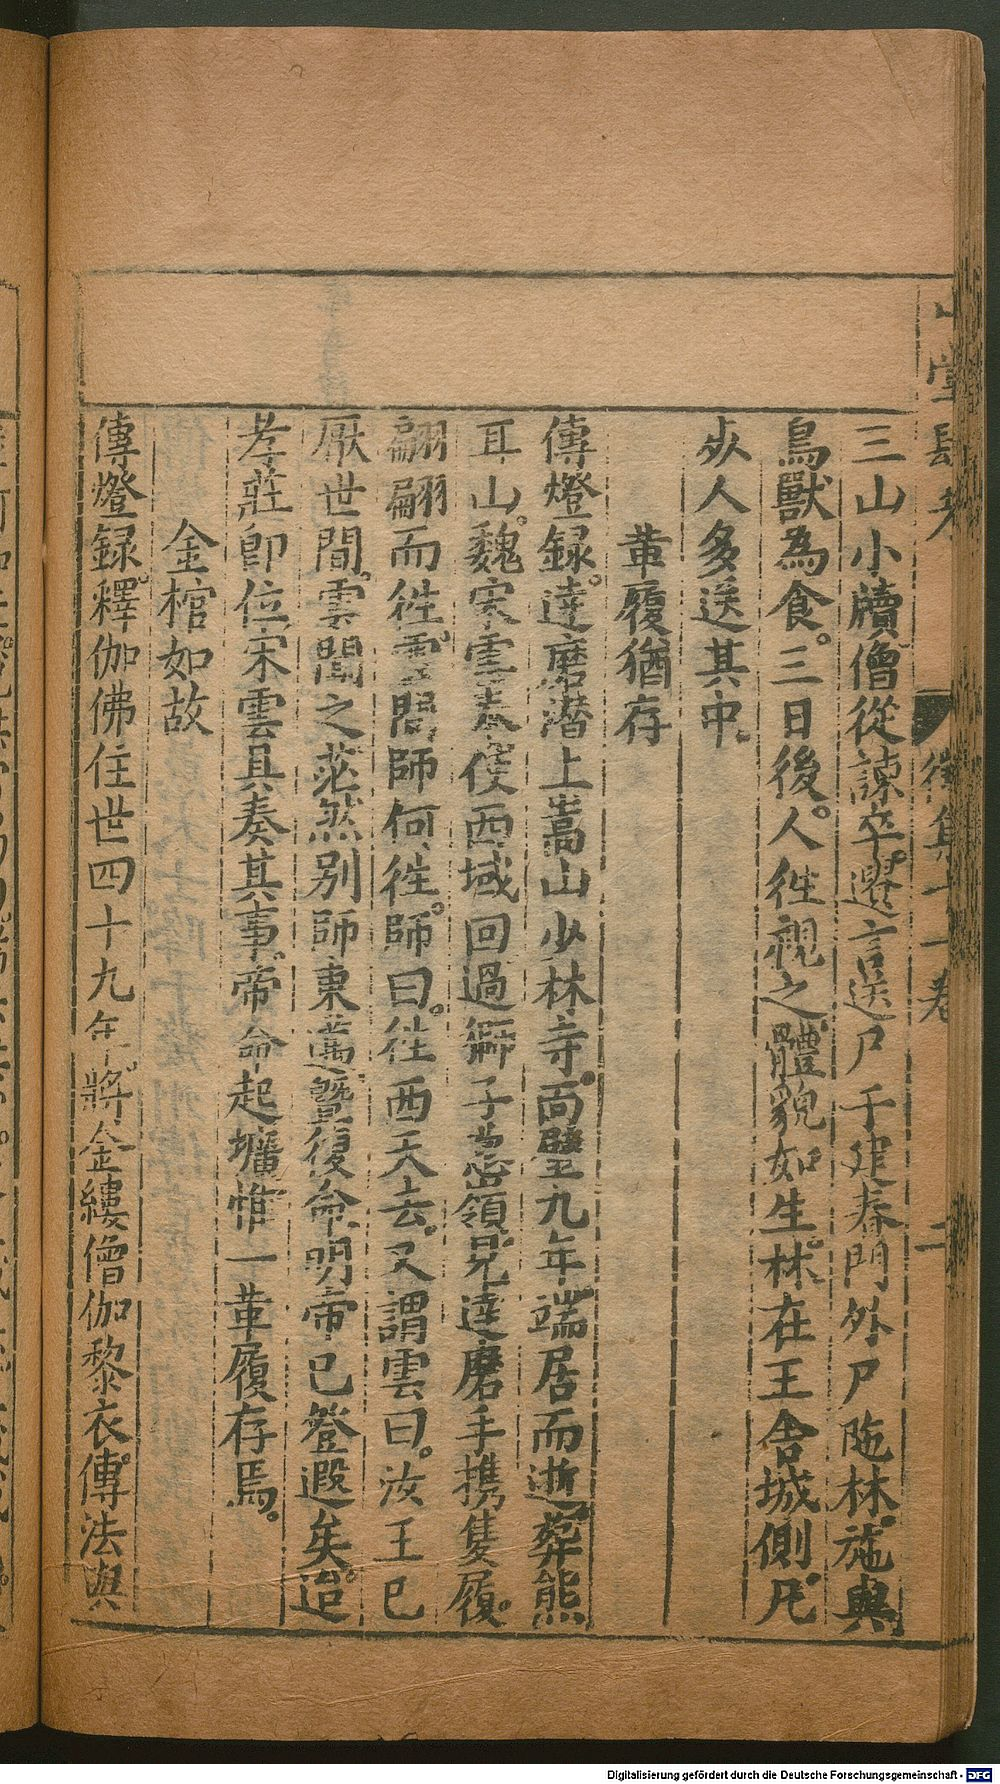 三山小牘僧從諫卒遷言送尸于建春門外尸陁林施與
鳥獸為食三日後人徃視之體貌如生林在王舍城側凡
死人多送其中
革履猶存
傳燈録達磨潜上嵩山少林寺面壁九年端居而逝葬熊
耳山魏宋雲奉使西域回過䓗領見達磨手携隻履
翩翩而徃雲問師何徃師曰徃西天去又謂雲曰汝王已
厭世間雲聞之茫然别師東邁暨復命明帝已登遐矣迨
孝莊即位宋雲具奏其事帝命起壙惟一革履存焉
金棺如故
傳燈録釋伽佛住世四十九年將金縷僧伽黎衣傳法與
山堂肆考
徵集十一卷
二
Digitalisierung gefördert durch die Deutsche Forschungsgemeinschaft - DFG